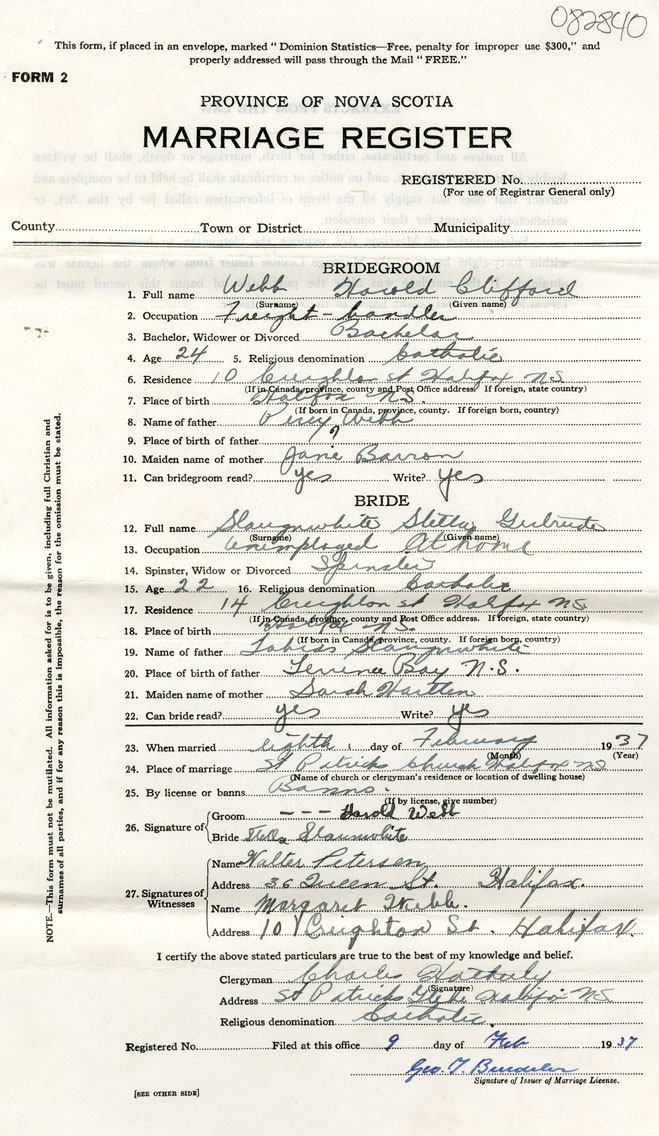 082840
This form, if placed in an envelope, marked "Dominion Statistics—Free, penalty for improper use $300," and
properly addressed will pass through the Mail "FREE."
FORM 2
PROVINCE OF NOVA SCOTIA
MARRIAGE REGISTER
REGISTERED No.
(For use of Registrar General only)
County Town or District Municipality
BRIDEGROOM
1. Full name Webb Harold Clifford
(Surname) (Given name)
2. Occupation Freight-handler
3. Bachelor, Widower or Divorced Bachelor
4. Age 24 5. Religious denomination Catholic
6. Residence 10 Creighton st Halifax N.S.
(If in Canada, province, county and Post Office address. If foreign, state country)
7. Place of birth Halifax N.S.
(If born in Canada, province, county. If foreign born, country)
8. Name of father Percy Webb
9. Place of birth of father ?
10. Maiden name of mother Jane Barron
11. Can bridegroom read? yes Write? yes
BRIDE
12. Full name Slaunwhite Stella Gertrude
(Surname) (Given name)
13. Occupation unemployed At home
14. Spinster, Widow or Divorced Spinster
15. Age 22 16. Religious denomination Catholic
17. Residence 14 Creighton st Halifax N.S.
(If in Canada, province, county and Post Office address. If foreign, state country)
18. Place of birth Halifax N.S.
(If born in Canada, province, county. If foreign born, country)
19. Name of father Tobias Slaunwhite
20. Place of birth of father Terrence Bay N.S.
21. Maiden name of mother Sarah Hartlen
22. Can bride read? yes Write? yes
23. When married eighth day of February 1937
(Month) (Year)
24. Place of marriage St Patricks Church Halifax N.S.
(Name of church or clergyman's residence or location of dwelling house)
25. By license or banns Banns.
(If by license, give number)
26. Signature of
Groom --- Harold Webb
Bride Stella Slaunwhite
27. Signatures of Witnesses
Name Walter Petersen
Address 36 Queen St. Halifax.
Name Margaret Webb.
Address 10 Creighton St. Halifax.
I certify the above stated particulars are true to the best of my knowledge and belief.
Clergyman Charles
(Signature)
Address St Patricks Glebe Halifax N.S.
Religious denomination Catholic.
Registered No. Filed at this office 9 day of Feb 1937
Geo. T.
Signature of Issuer of Marriage License.
[SEE OTHER SIDE]
NOTE.—This form must not be mutilated. All information asked for is to be given, including full Christian and
surnames of all parties, and if for any reason this is impossible, the reason for the omission must be stated.